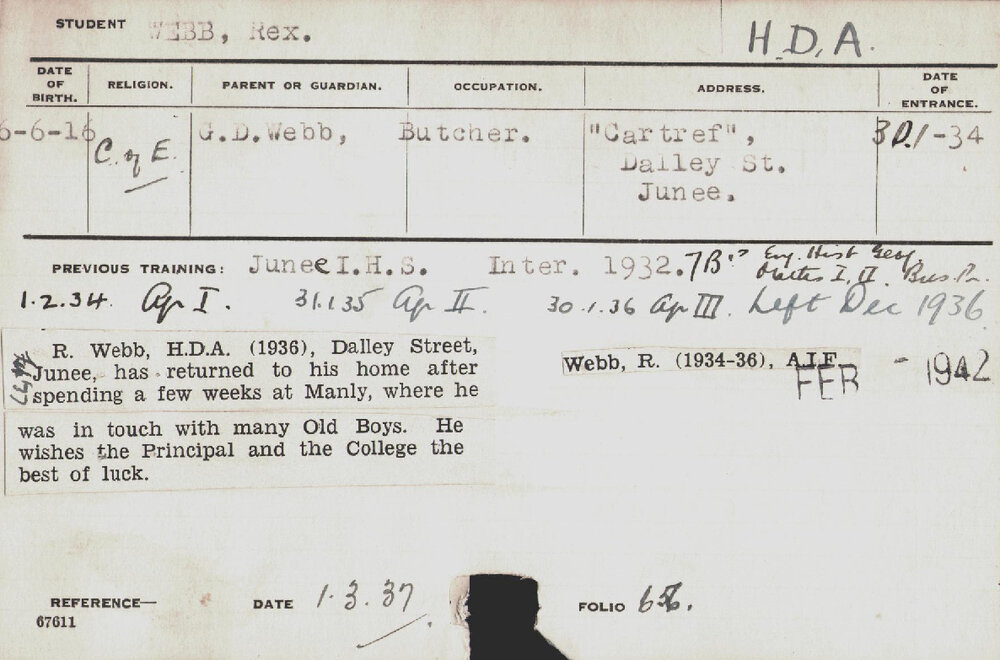 STUDENT WEBB, Rex. H.D.A.
DATE OF BIRTH. RELIGION. PARENT OR GUARDIAN. OCCUPATION. ADDRESS. DATE OF ENTRANCE.
6-6-16 C. of E. G.D.Webb, Butcher. "Cartref", -34
Dalley St.
Junee.
PREVIOUS TRAINING: Junee I.H.S. Inter. 1932. 7B's Eng. Hist Geog.
Maths I, II Bus. Pr.
1.2.34 Ag I. 31.1.35 Ag II. 30.1.36 Ag III Left Dec 1936
R. Webb, H.D.A. (1936), Dalley Street,
Junee, has returned to his home after
spending a few weeks at Manly, where he
was in touch with many Old Boys. He
wishes the Principal and the College the
best of luck.
Webb, R. (1934-36), A.I.F.
FEB - 1942
REFERENCE— DATE 1.3.37 FOLIO
67611